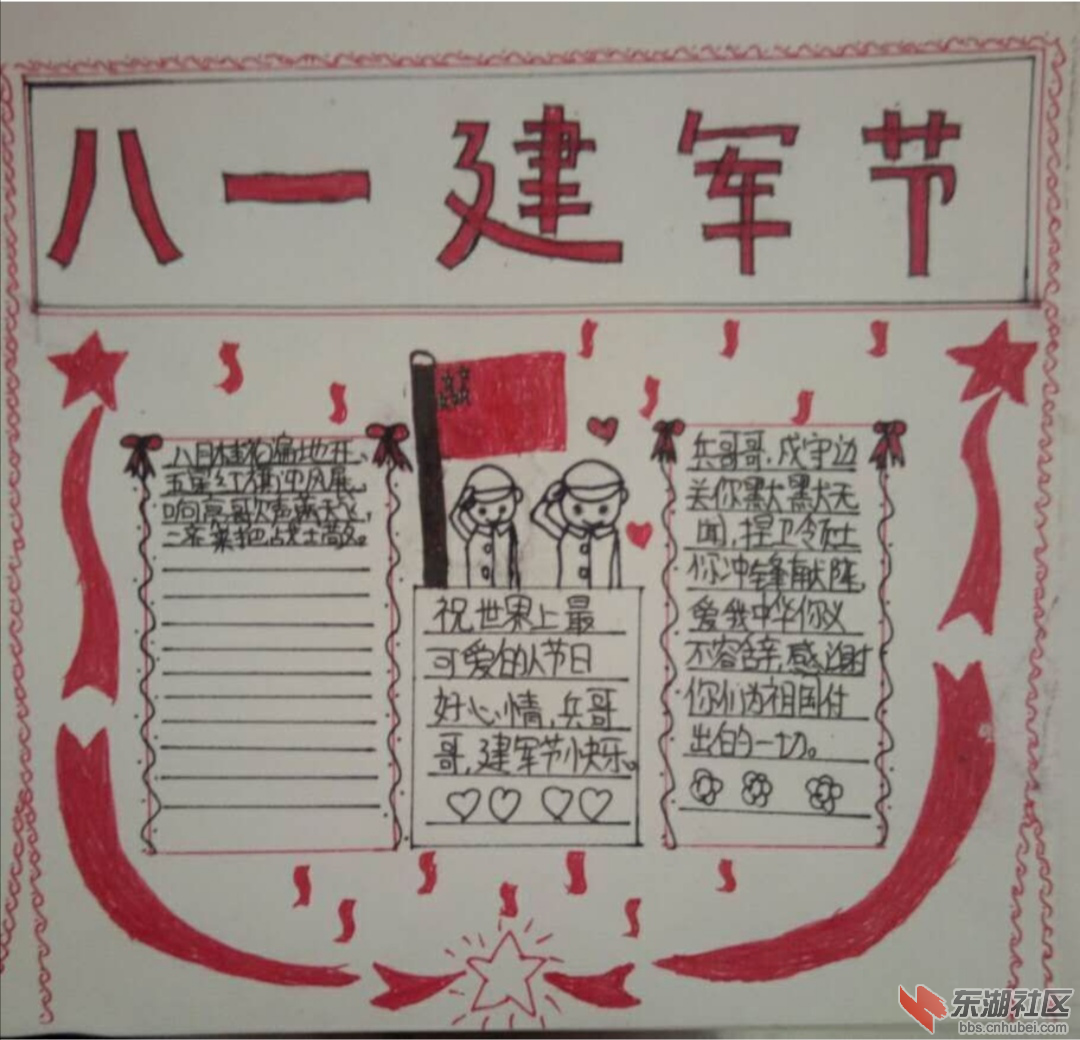 八一建军节
八月桂花遍地开,
五星红旗迎风展。
响亮哥歌声满天飞,
战士
祝世界上最
可爱的人节日
好心情,兵哥
哥,建军节快乐。
兵哥哥,戍守边
关你默默无
闻,捍卫领土
你冲锋献阵,
爱我中华你义
不容辞,感谢
你们为祖国付
出的一切。
东湖社区
bbs.cnhubei.com